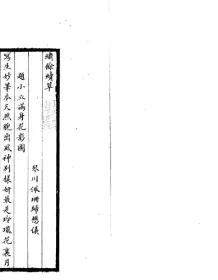 繡餘續草
琴川佩珊歸懋儀
趙小立滿身花影圖
寫生妙筆本天然貌出風神別樣妍最是玲瓏花裏月